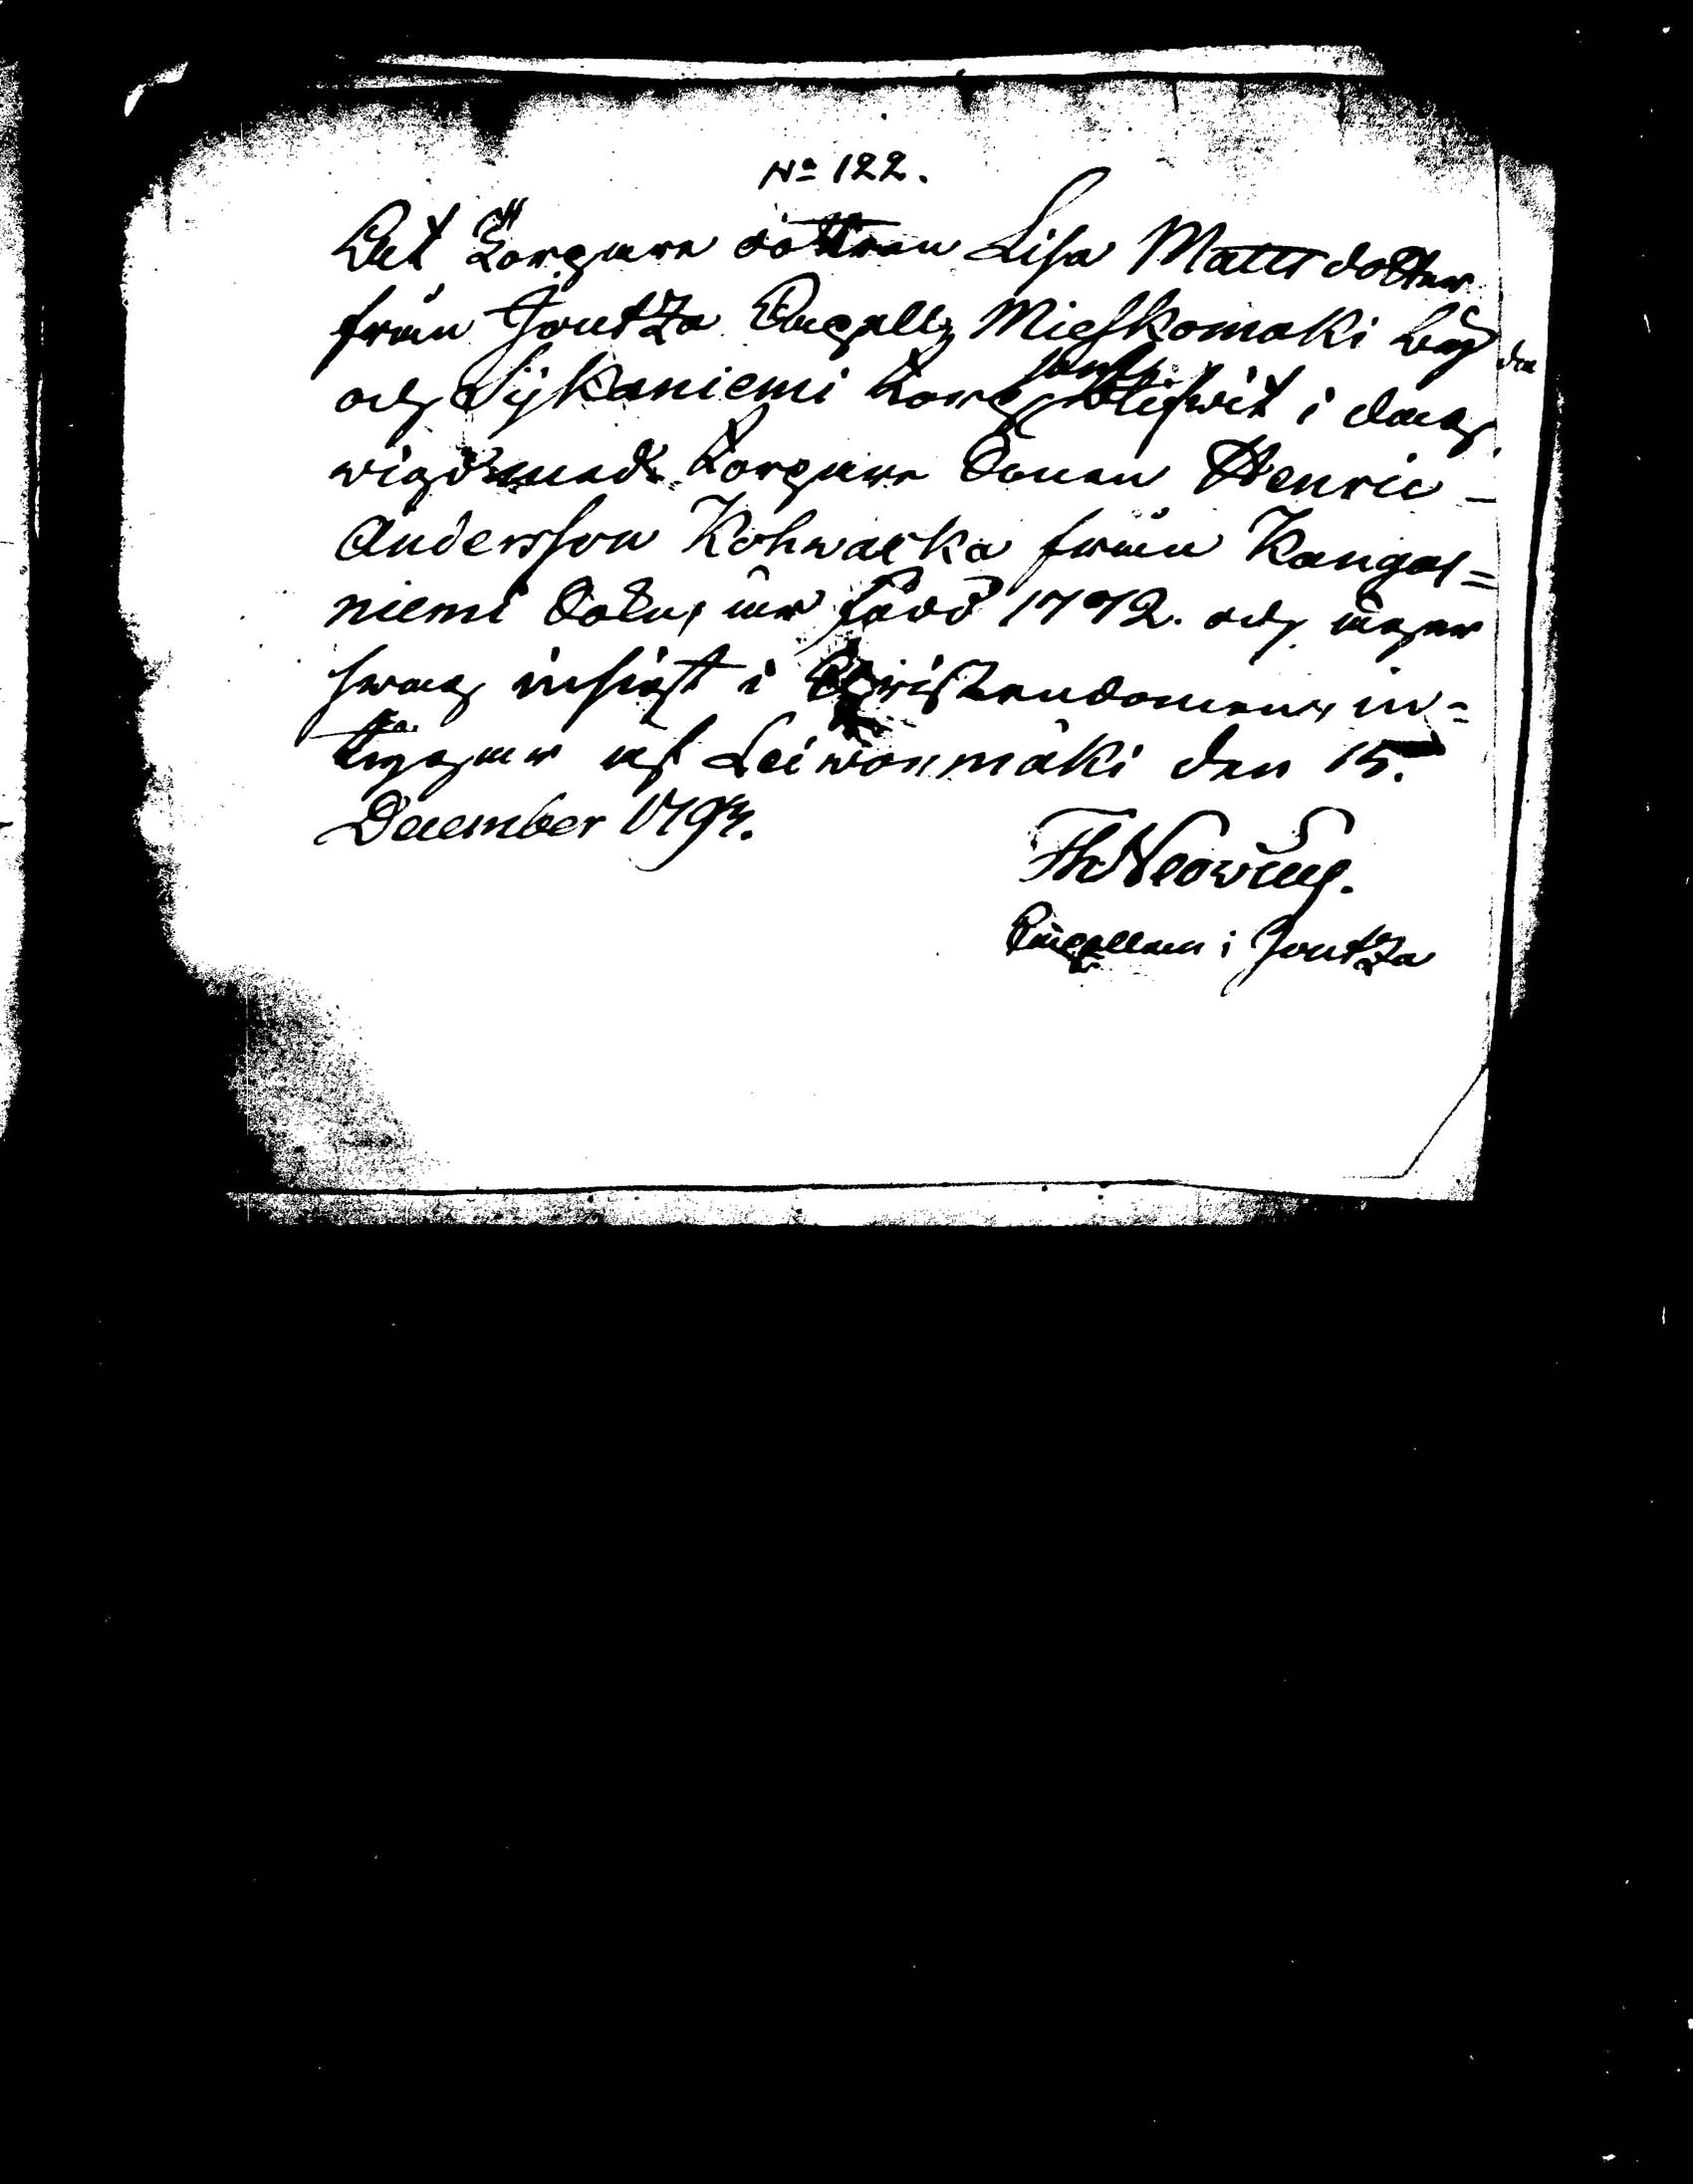 No 122.
Det Torpare dottren Lisa Matts dotter
från Joutza Capell, Mieskomäki by
och Sykäniemi torp, som blifwit i dag
wigd med Torpare Sonen Henric
Andersson Kohwacka från Kangas=
niemi Sokn, är född 1772. och äger
swag insigt i Christendomen, in=
tygar af Leiwonmäki den 15.
December 1794.
Th Neovius.
Capellan i Joutza